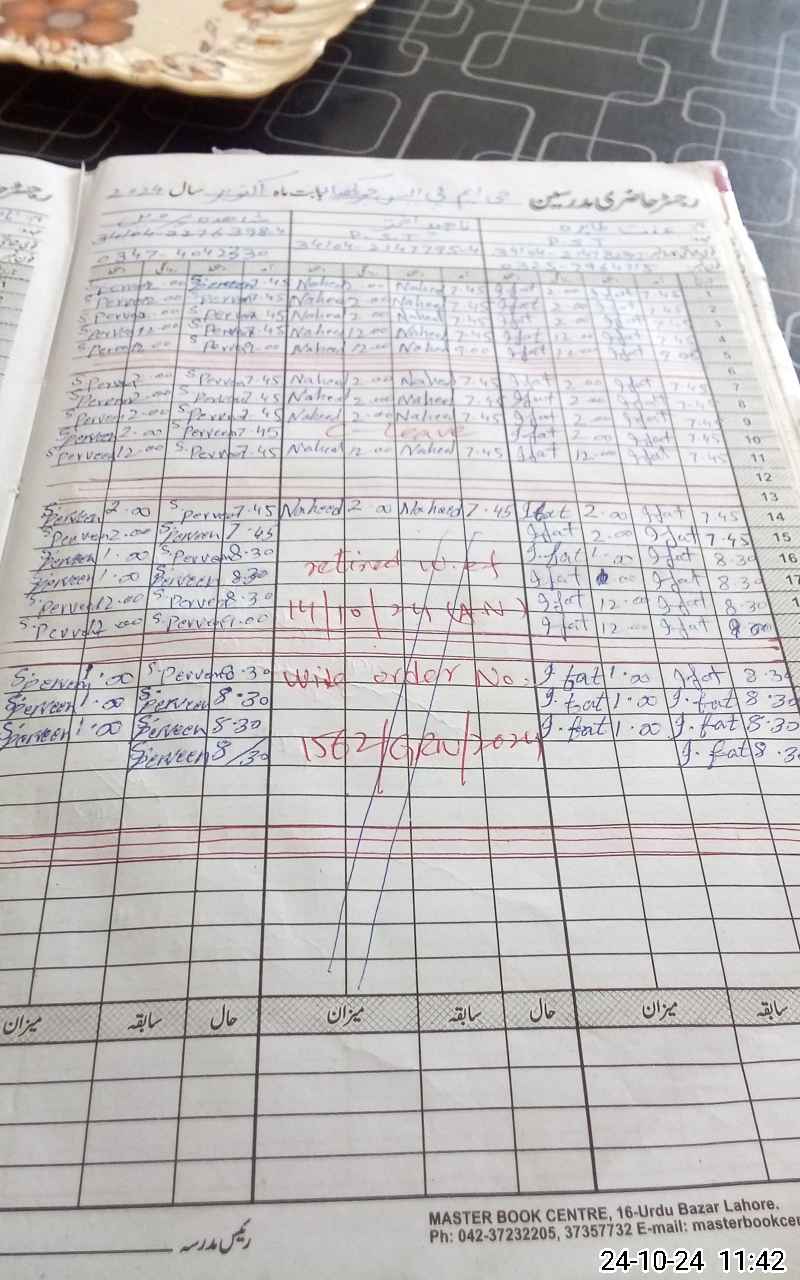 رجسٹر حاضری مدرسین بابت ماہ اکتوبر سال 2024
P.S.T P.S.T
0347-4042330
S.Perveen 2.00 S.Perveen 7.45 Naheed 2.00 Naheed 7.45 Ifat 2.00 Ifat 7.45 1
S.Perveen 2.00 S.Perveen 7.45 Naheed 2.00 Naheed 7.45 Ifat 2.00 Ifat 7.45 2
S.Perveen 2.00 S.Perveen 7.45 Naheed 2.00 Naheed 7.45 Ifat 2.00 Ifat 7.45 3
S.Perveen 12.00 S.Perveen 7.45 Naheed 12.00 Naheed 7.45 Ifat 12.00 Ifat 7.45 4
S.Perveen S.Perveen 9.00 Naheed 12.00 Naheed 9.00 Ifat 12.00 Ifat 9.00 5
6
S.Perveen 2.00 S.Perveen 7.45 Naheed 2.00 Naheed 7.45 Ifat 2.00 Ifat 7.45 7
S.Perveen 2.00 S.Perveen 7.45 Naheed 2.00 Naheed 7.45 Ifat 2.00 Ifat 7.45 8
S.Perveen 2.00 S.Perveen 7.45 Naheed 2.00 Naheed 7.45 Ifat 2.00 Ifat 7.45 9
S.Perveen 2.00 S.Perveen 7.45 C Leave Ifat 2.00 Ifat 7.45 10
S.Perveen 12.00 S.Perveen 7.45 Naheed 12.00 Naheed 7.45 Ifat 12.00 Ifat 7.45 11
12
13
S.Perveen 2.00 S.Perveen 7.45 Naheed 2.00 Naheed 7.45 Ifat 2.00 Ifat 7.45 14
S.Perveen 2.00 S.Perveen 7.45 Ifat 2.00 Ifat 7.45 15
S.Perveen 1.00 S.Perveen 8.30 retired w.e.f I.fat 1.00 Ifat 8.30 16
S.Perveen 1.00 S.Perveen 8.30 Ifat 1.00 Ifat 8.30 17
S.Perveen 12.00 S.Perveen 8.30 14/10/24 (A.N) Ifat 12.00 Ifat 8.30
S.Perveen 12.00 S.Perveen 9.00 Ifat 12.00 Ifat 9.00
S.Perveen 1.00 S.Perveen 8.30 wide order No. I.fat 1.00 Ifat 8.30
S.Perveen 1.00 S.Perveen 8.30 I.fat 1.00 I.fat 8.30
S.Perveen 1.00 S.Perveen 8.30 I.fat 1.00 I.fat 8.30
S.Perveen 8/30 1562/GRW/2024 I.fat 8.30
سابقہ میزان حال سابقہ میزان حال سابقہ میزان
رئیس مدرسہ
MASTER BOOK CENTRE, 16-Urdu Bazar Lahore.
Ph: 042-37232205, 37357732 E-mail: masterbookcen
24-10-24 11:42